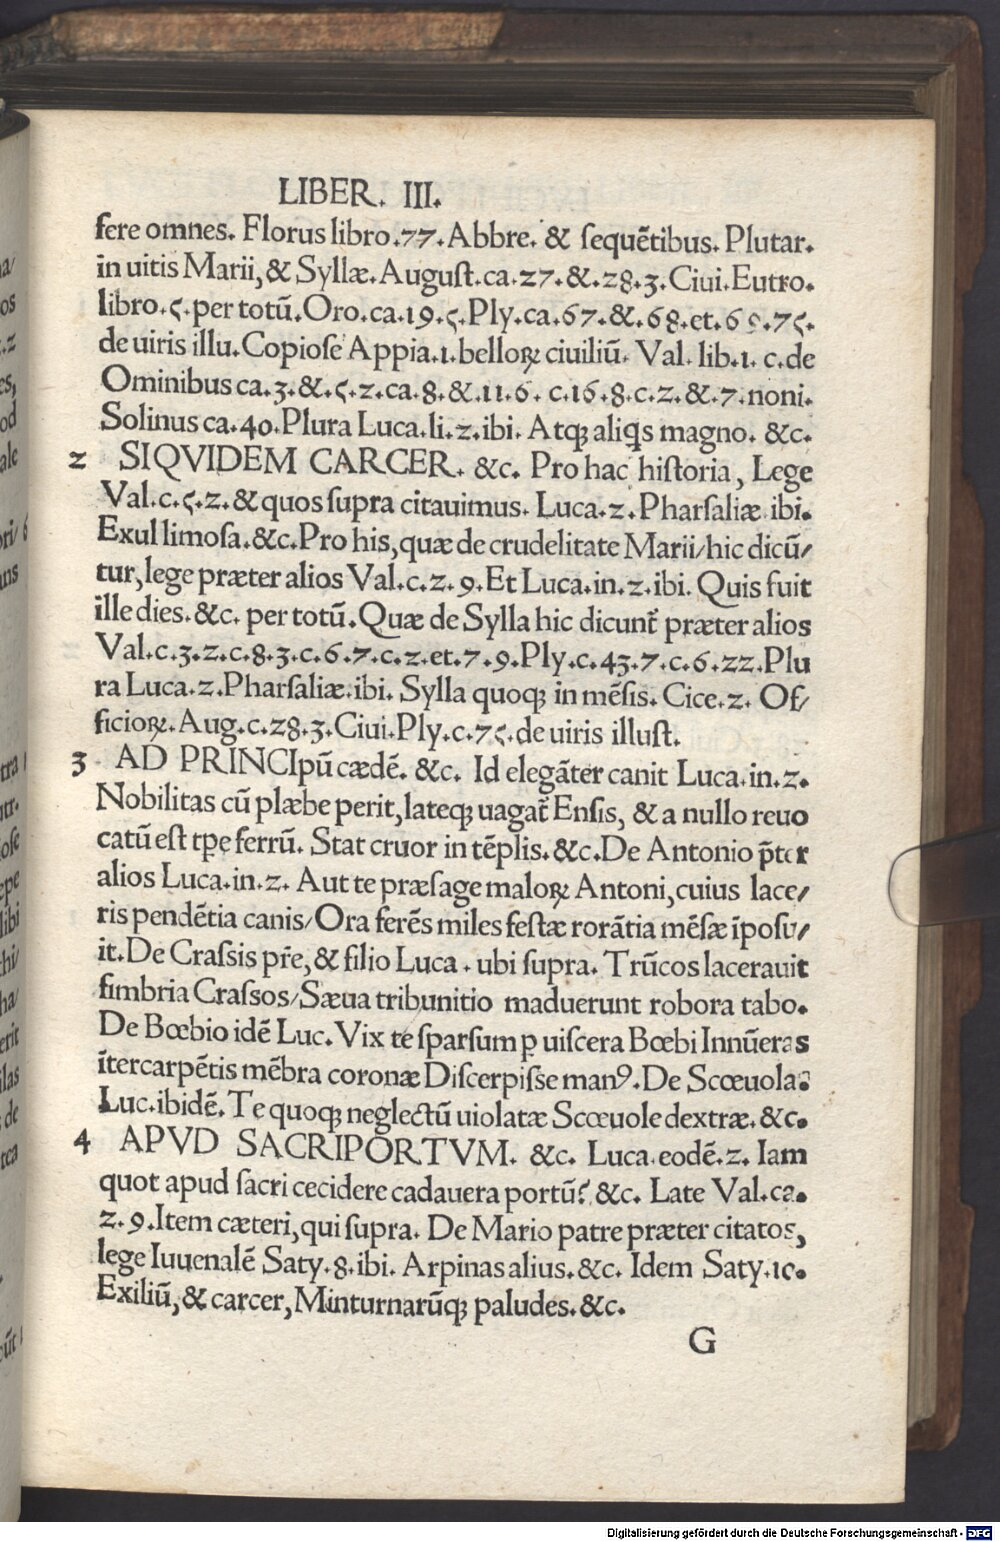 LIBER. III.
fere omnes. Florus libro.77. Abbre. & ſequẽtibus. Plutar.
in uitis Marii, & Syllæ. Auguſt. ca.27.&.28.3. Ciui. Eutro.
libro.5. per totũ. Oro. ca.19.5. Ply. ca.67.&.68. et.69.75.
de uiris illu. Copioſe Appia.1. belloꝝ ciuiliũ. Val. lib.1. c. de
Ominibus ca.3.&.5.2. ca.8.&.11.6. c.16.8. c.2.&.7. noni.
Solinus ca.40. Plura Luca. li.2. ibi. Atqꝫ aliqͥs magno. &c.
2 SIQVIDEM CARCER. &c. Pro hac hiſtoria, Lege
Val. c.5.2. & quos ſupra citauimus. Luca.2. Pharſaliæ ibi.
Exul limoſa. &c. Pro his, quæ de crudelitate Marii/ hic dicũ/
tur, lege præter alios Val. c.2.9. Et Luca. in.2. ibi. Quis fuit
ille dies. &c. per totũ. Quæ de Sylla hic dicunt᷑ præter alios
Val. c.3.2. c.8.3. c.6.7. c.2. et.7.9. Ply. c.43.7. c.6.22. Plu
ra Luca.2. Pharſaliæ. ibi. Sylla quoqꝫ in mẽſis. Cice.2. Of/
ficioꝝ. Aug. c.28.3. Ciui. Ply. c.75. de uiris illuſt.
3 AD PRINCIpũ cædẽ. &c. Id elegãter canit Luca. in.2.
Nobilitas cũ plæbe perit, lateqꝫ uagat᷑ Enſis, & a nullo reuo
catũ eſt tꝑe ferrũ. Stat cruor in tẽplis. &c. De Antonio p̃ter
alios Luca. in.2. Aut te præſage maloꝝ Antoni, cuius lace/
ris pendẽtia canis/ Ora ferẽs miles feſtæ rorãtia mẽſæ ĩpoſu/
it. De Craſsis pr̃e, & filio Luca. ubi ſupra. Trũcos lacerauit
fimbria Craſsos/ Sæua tribunitio maduerunt robora tabo.
De Bœbio idẽ Luc. Vix te ſparſum ꝑ uiſcera Bœbi Innũeras
ĩtercarpẽtis mẽbra coronæ Diſcerpiſse manꝰ. De Scœuola:
Luc. ibidẽ. Te quoqꝫ neglectũ uiolatæ Scœuole dextræ. &c.
4 APVD SACRIPORTVM. &c. Luca. eodẽ.2. Iam
quot apud ſacri cecidere cadauera portũ? &c. Late Val. ca.
2.9. Item cæteri, qui ſupra. De Mario patre præter citatos,
lege Iuuenalẽ Saty.8. ibi. Arpinas alius. &c. Idem Saty.10.
Exiliũ, & carcer, Minturnarũqꝫ paludes. &c.
G
Digitalisierung gefördert durch die Deutsche Forschungsgemeinschaft - DFG